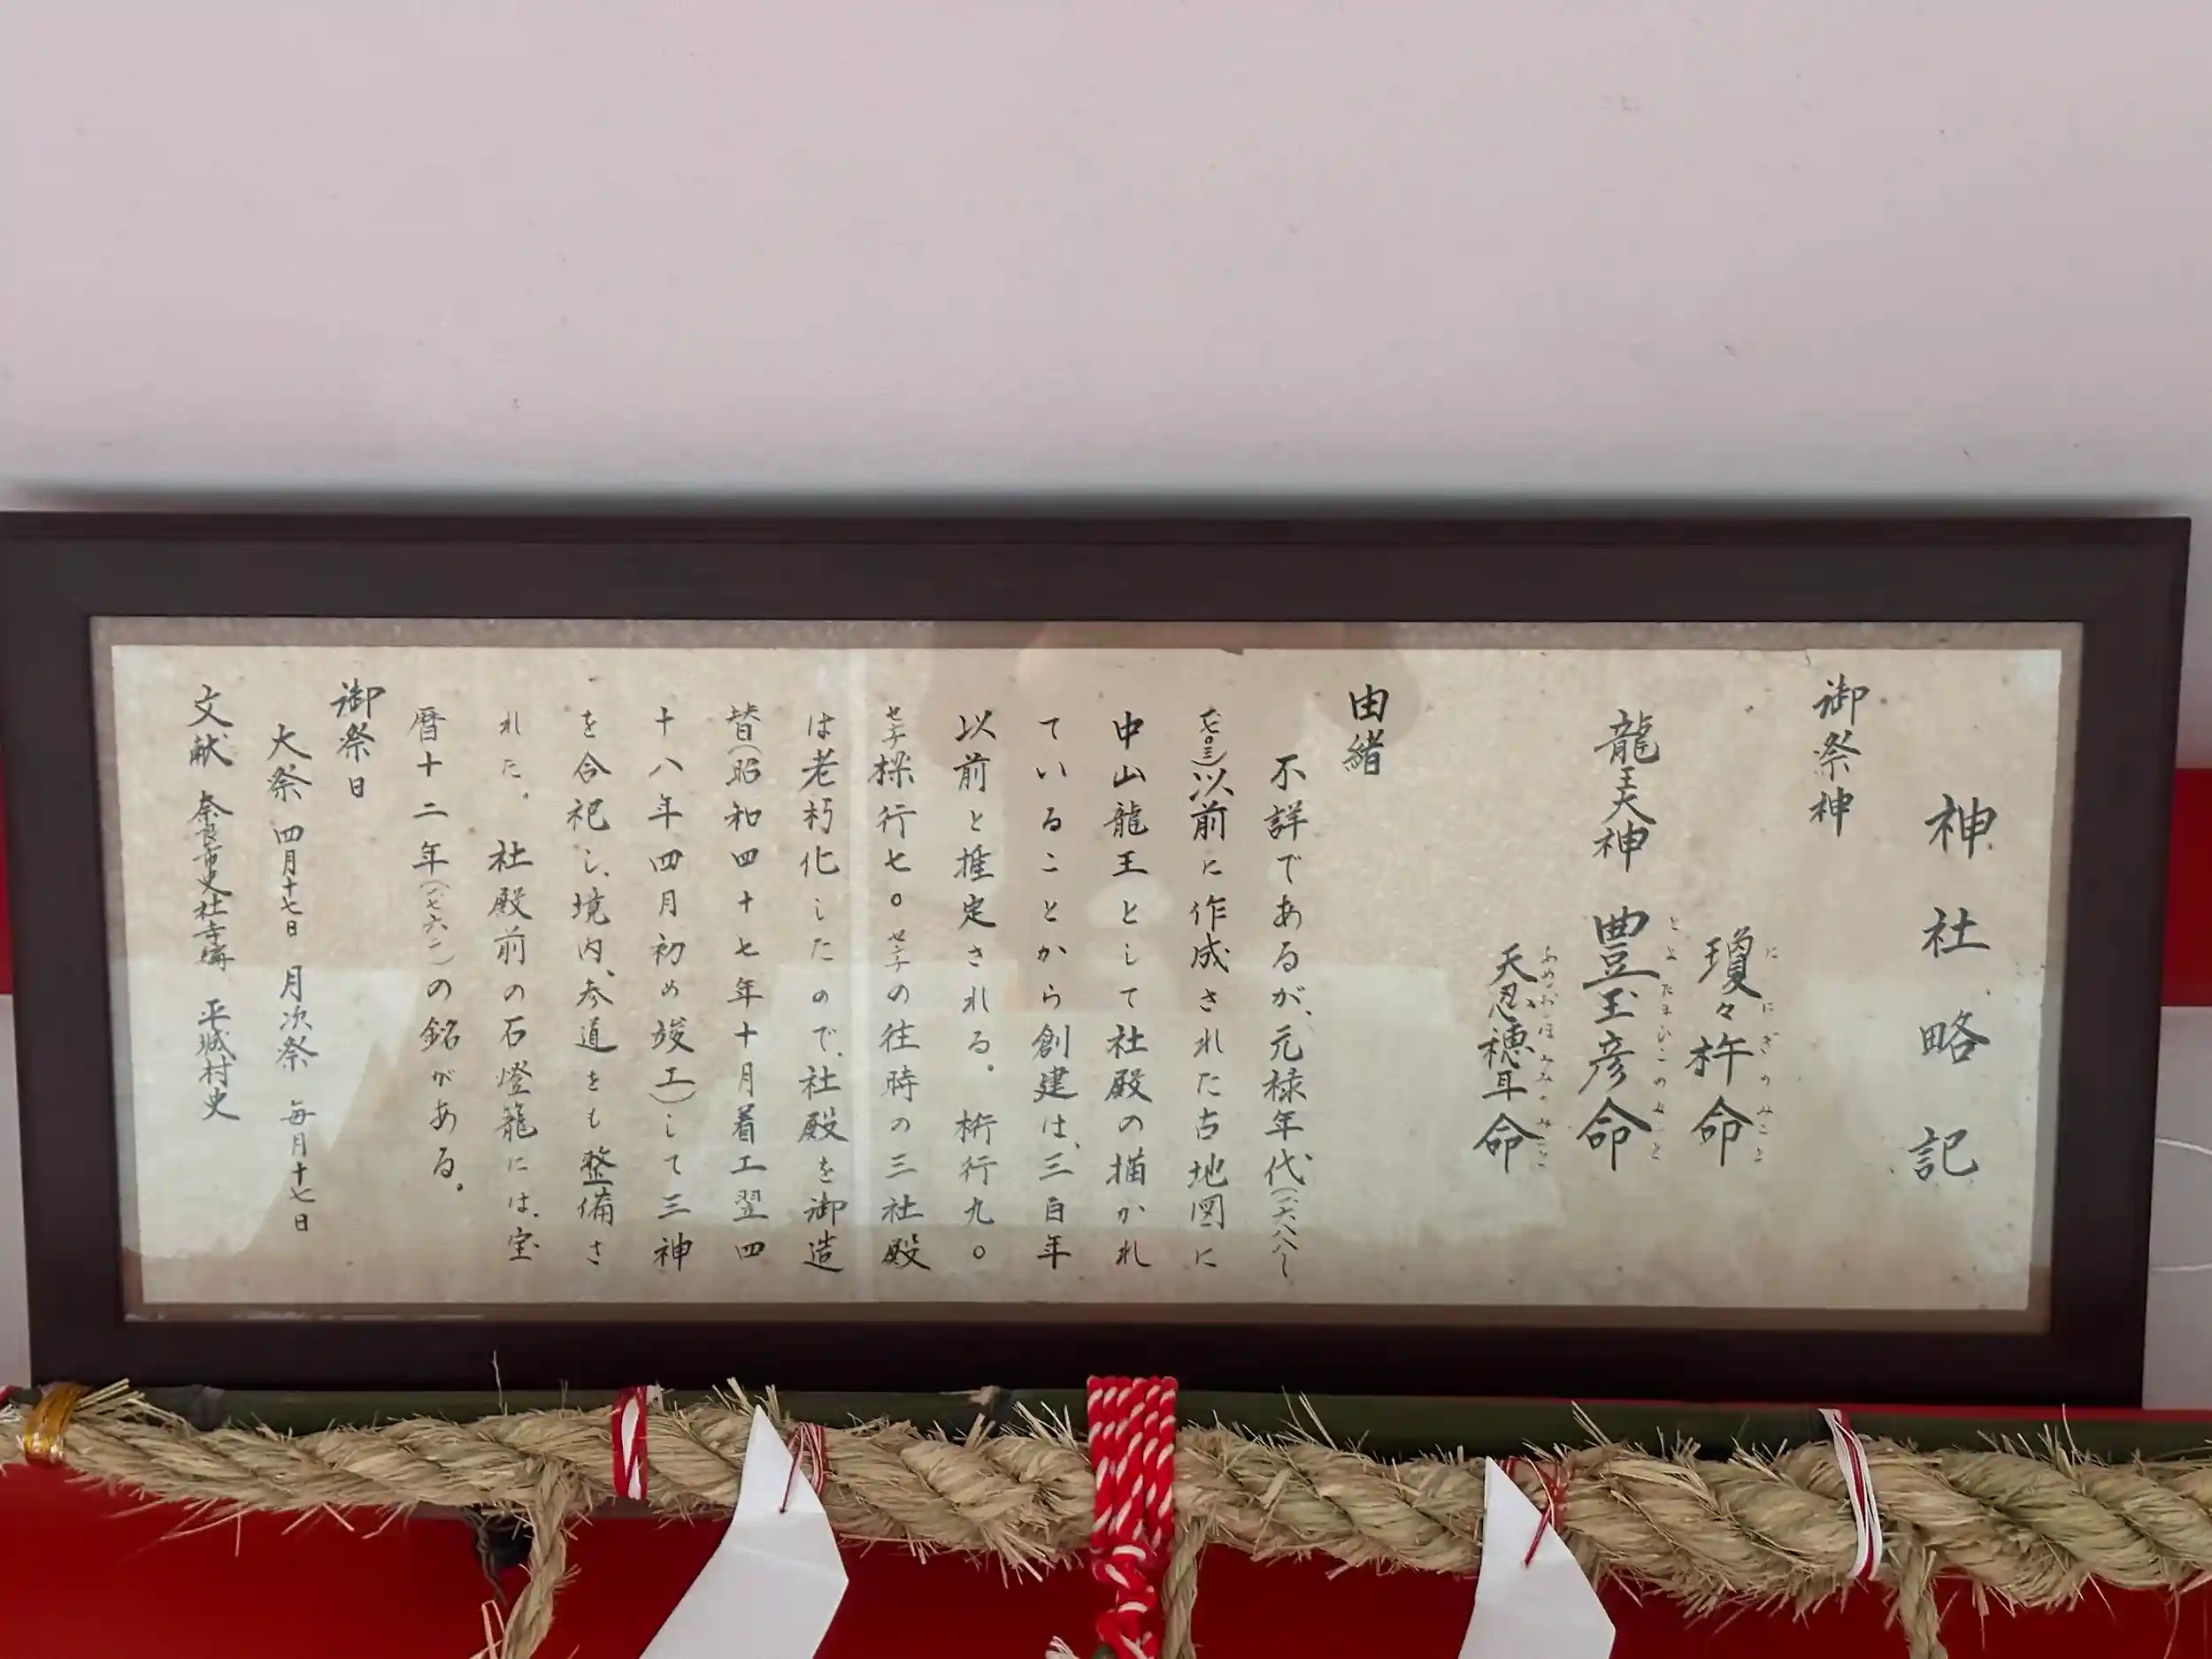 神社略記
御祭神
瓊々杵命
ににぎのみこと
龍王天神 豊玉彦命
とよたまひこのみこと
天忍穂耳命
あめおしほみみのみこと
由緒
不詳であるが、元禄年代(一六八八〜
一七〇三)以前に作成された古地図に
中山龍王として社殿の描かれ
ていることから創建は、三百年
以前と推定される。桁行九〇
センチ梁行七〇センチの往時の三社殿
は老朽化したので、社殿を御造
替(昭和四十七年十月着工翌四
十八年四月初め竣工)して三神
を合祀し、境内、参道をも整備さ
れた。 社殿前の石燈籠には、宝
暦十二年(一七六二)の銘がある。
御祭日
大祭 四月十七日 月次祭 毎月十七日
文献 奈良市史社寺編 平城村史